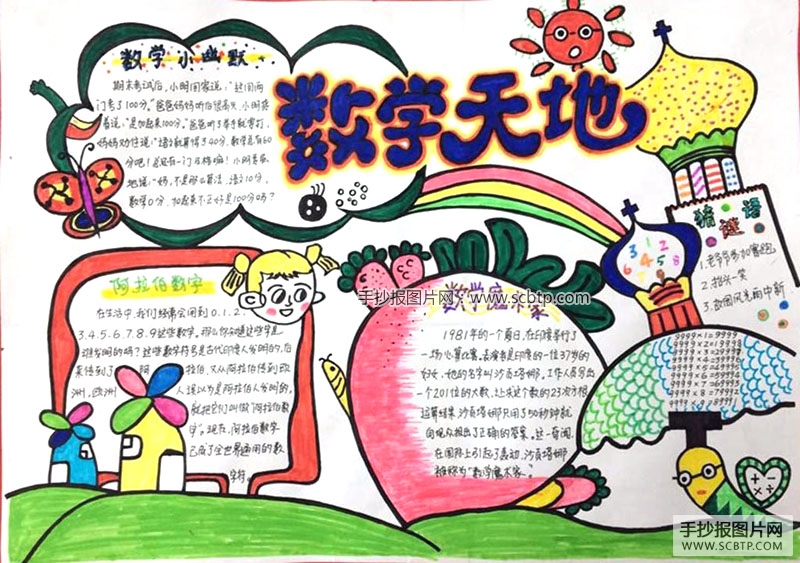 数学天地
数学小幽默
期末考试后，小明回家说："这回两
门考了100分。"爸爸妈妈听后很高兴，小明接
着说："是加起来100分。"爸爸听了举手就要打，
妈妈劝住说："语文就算得了40分，数学总有60
分吧！总还有一门及格嘛！小明委屈
地说："妈，不是那么算法，语文10分，
数学0分，加起来不正好是100分吗？
阿拉伯数字
在生活中，我们经常会用到0.1.2.
3.4.5.6.7.8.9这些数字。那么你知道这些字是
谁发明的吗？这些数字符号是古代印度人发明的，后
来传到了阿拉伯，又从阿拉伯传到欧
洲，欧洲人误以为是阿拉伯人发明的，
就把它们叫做"阿拉伯数
字"。现在，阿拉伯数字
已成了全世界通用的数
字符。
手抄报图片网 www.scbtp.com
数学魔术家
1981年的一个夏日，在印度举行了
一场心算比赛。表演者是印度的一位37岁的
妇女，她的名字叫沙贡塔娜。工作人员写出
一个201位的大数，让求这个数的23次方根
运算结果，沙贡塔娜只用了50秒钟就
向观众报出了正确的答案。这一奇闻，
在国际上引起了轰动，沙贡塔娜
被称为"数学魔术家"。
猜谜语
1.老爷爷参加赛跑
2.抬头一笑
3.
3 1 2
6 4 5
7 8
9999×1=9999
手抄报图片网
WWW.SCBTP.COM